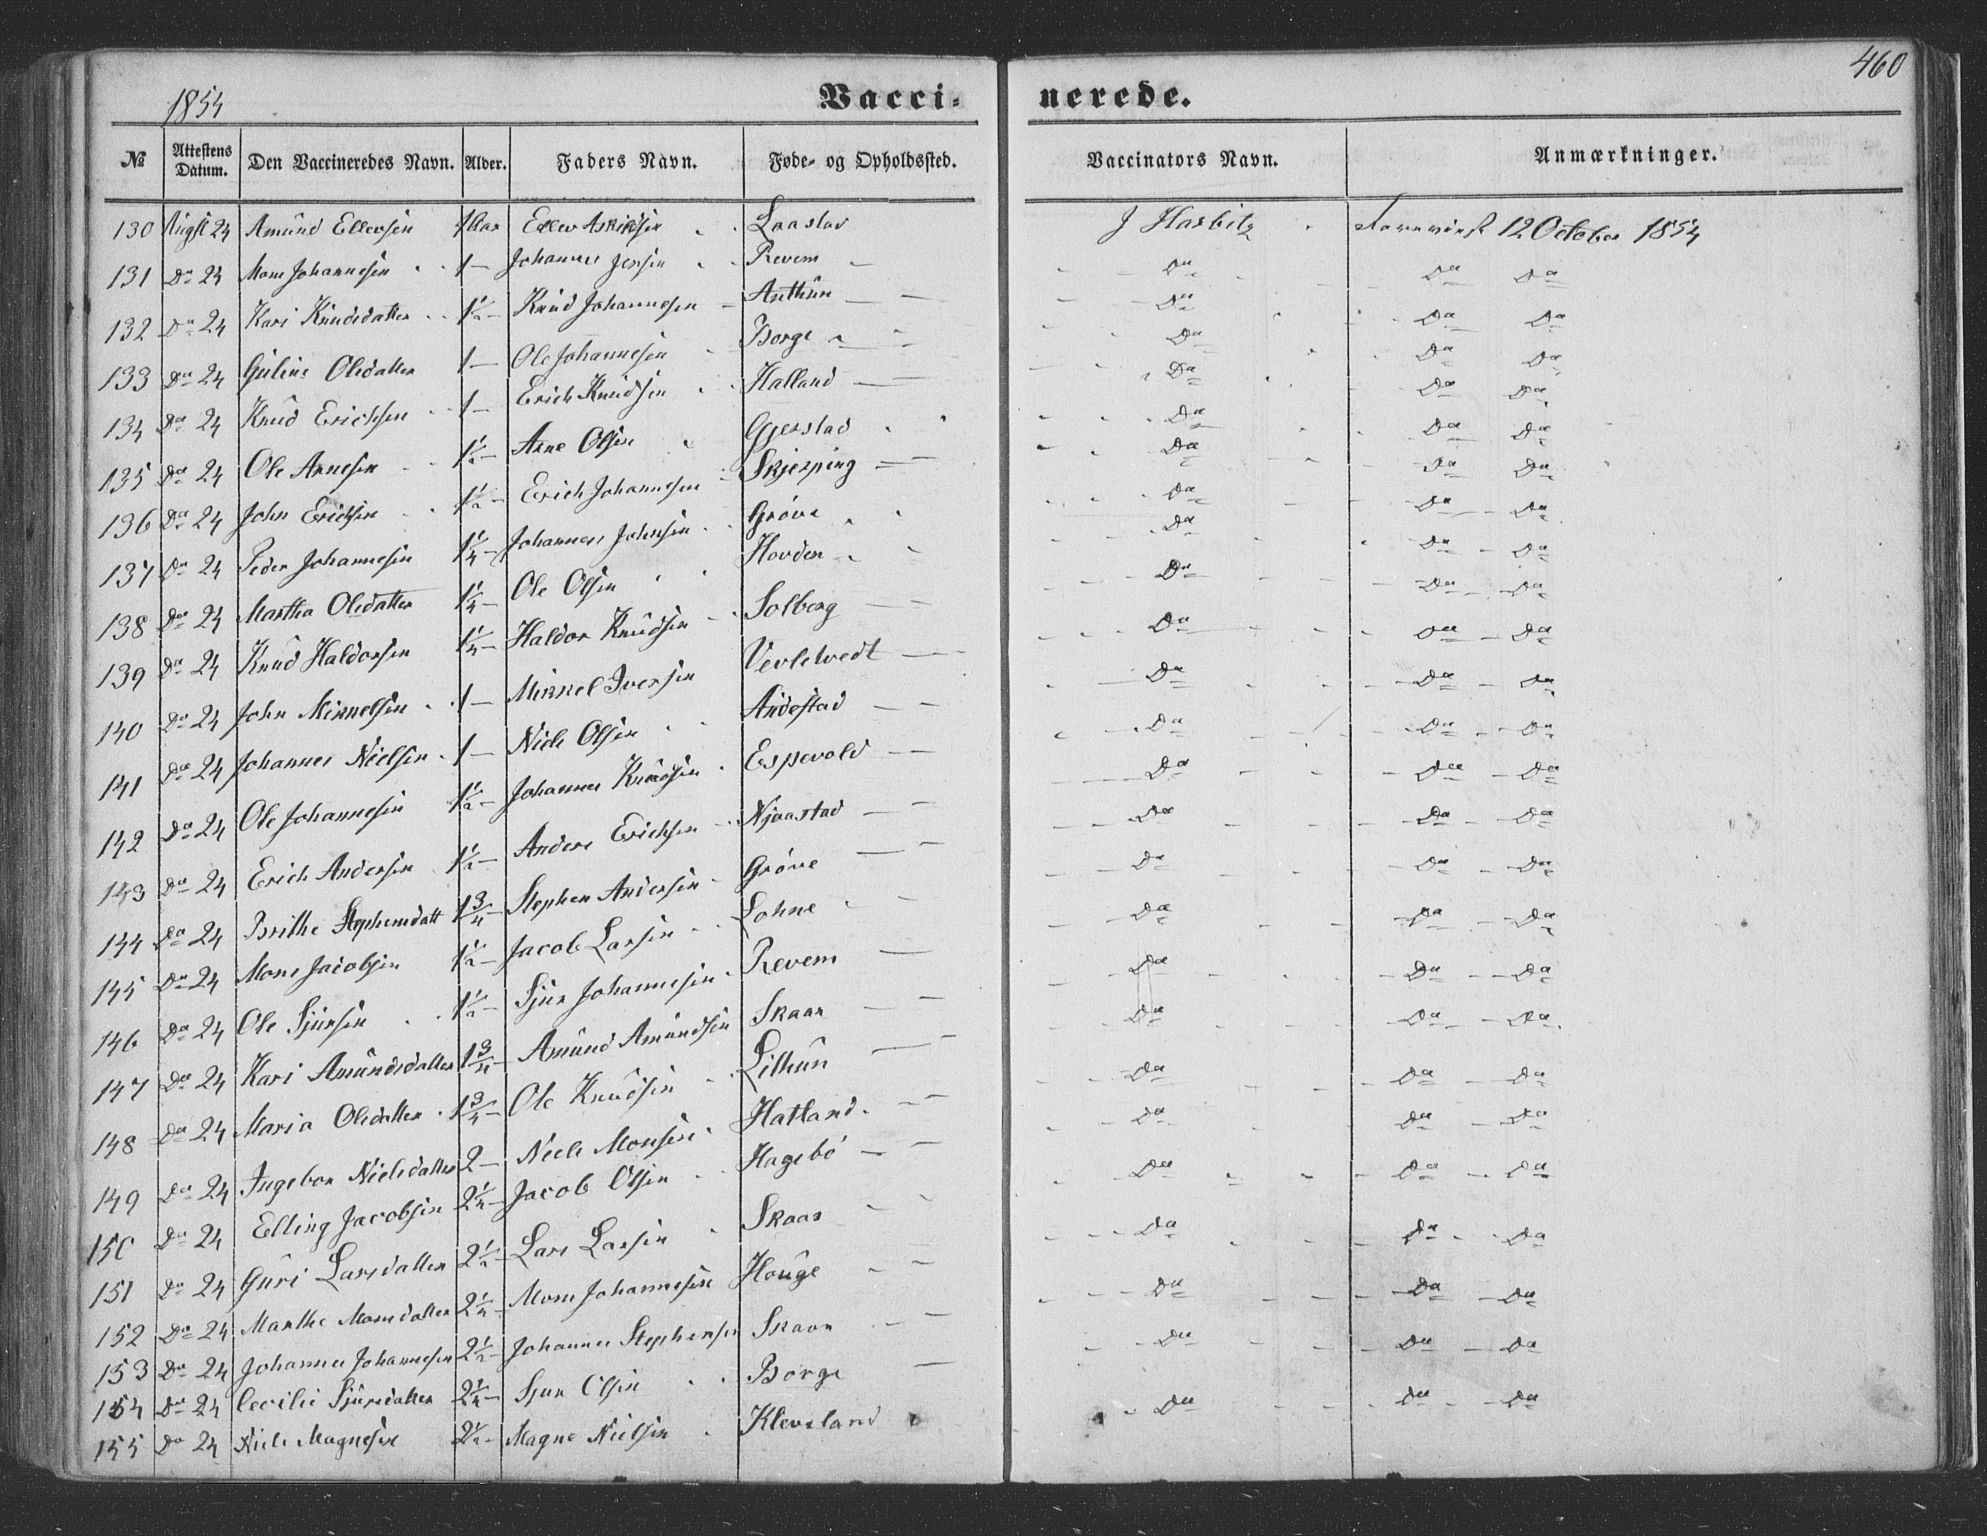 460
1854
Vacci- nerede.
№ Attestens Datum. Den Vaccineredes Navn. Alder. Faders Navn. Føde- og Opholdssted. Vaccinators Navn. Anmærkninger.
130 Augst 24 Amund Ellevsen 1 Aar Ellev Askildsen Laastad J Hasbitz 12 October 1854
131 Do 24 Mons Johannesen 1 — Johannes Jensen Revem — Do Do Do
132 Do 24 Kari Knudsdatter 1½ — Knud Johannesen — Anthun — — Do Do Do
133 Do 24 Guline Olsdatter 1 — Ole Johannesen Borge — Do Do Do
134 Do 24 Knud Erichsen 1 — Erich Knudsen Halland — — Do Do Do
135 Do 24 Ole Arnesen 1½ — Arne Olsen Gjerstad Do Do Do
136 Do 24 John Erichsen 1½ — Erich Johannesen Skjerping — Do Do Do
137 Do 24 Peder Johannesen 1¼ — Johannes Johnsen Grove Do Do Do
138 Do 24 Martha Olsdatter 1¼ — Ole Olsen Hovden Do Do Do
139 Do 24 Knud Haldorsen 1¼ — Haldor Knudsen Solberg — Do Do Do
140 Do 24 John Mikkelsen 1 — Mikkel Iversen Vevletvedt — Do Do Do
141 Do 24 Johannes Nielsen 1 — Niels Olsen Andestad — — Do Do Do
142 Do 24 Ole Johannesen 1½ — Johannes Knudsen Espevold — Do Do Do
143 Do 24 Erich Andersen 1½ — Anders Erichsen Njaastad — — Do Do Do
144 Do 24 Brithe Stephensdatt 1¾ — Stephen Andersen Grove — — Do Do Do
145 Do 24 Mons Jacobsen 1½ — Jacob Larsen Lohne Do Do Do
146 Do 24 Ole Sjursen 1½ — Sjur Johannesen Revem — — Do Do Do
147 Do 24 Kari Amundsdatter 1¾ — Amund Amundsen Skaar — — Do Do Do
148 Do 24 Maria Olsdatter 1¾ — Ole Knudsen Lithun — — Do Do Do
149 Do 24 Ingebor Nielsdatter 2 — Niels Monsen Hatland — — Do Do Do
150 Do 24 Elling Jacobsen 2¼ — Jacob Olsen Hagebø — — Do Do Do
151 Do 24 Guri Larsdatter 2½ — Lars Larsen Skaar Do Do Do
152 Do 24 Marthe Monsdatter 2¼ — Mons Johannesen Houge — — Do Do Do
153 Do 24 Johannes Johannesen 2½ — Johannes Stephensen Skaar — — Do Do Do
154 Do 24 Cecilie Sjursdatter 2¼ — Sjur Olsen Borge — Do Do Do
155 Do 24 Niels Magnesen 2½ — Magne Nielsen Klevsland